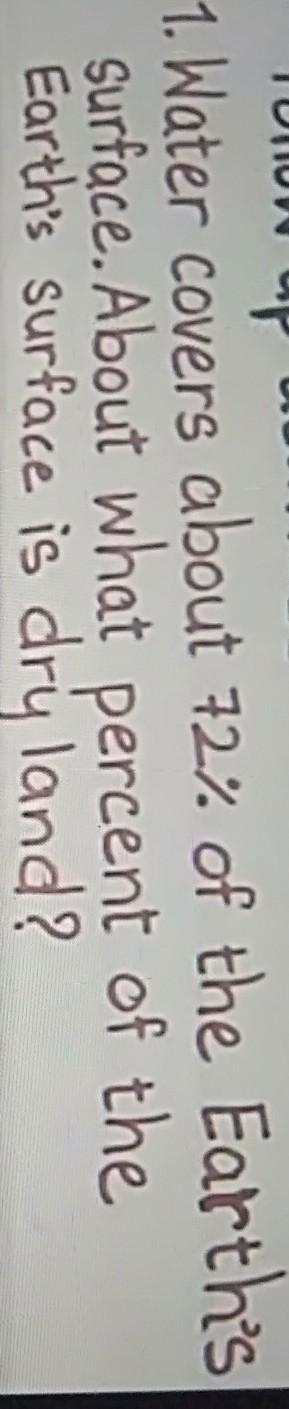 1. Water covers about 72% of the Earth's
surface. About what percent of the
Earth's surface is dry land?